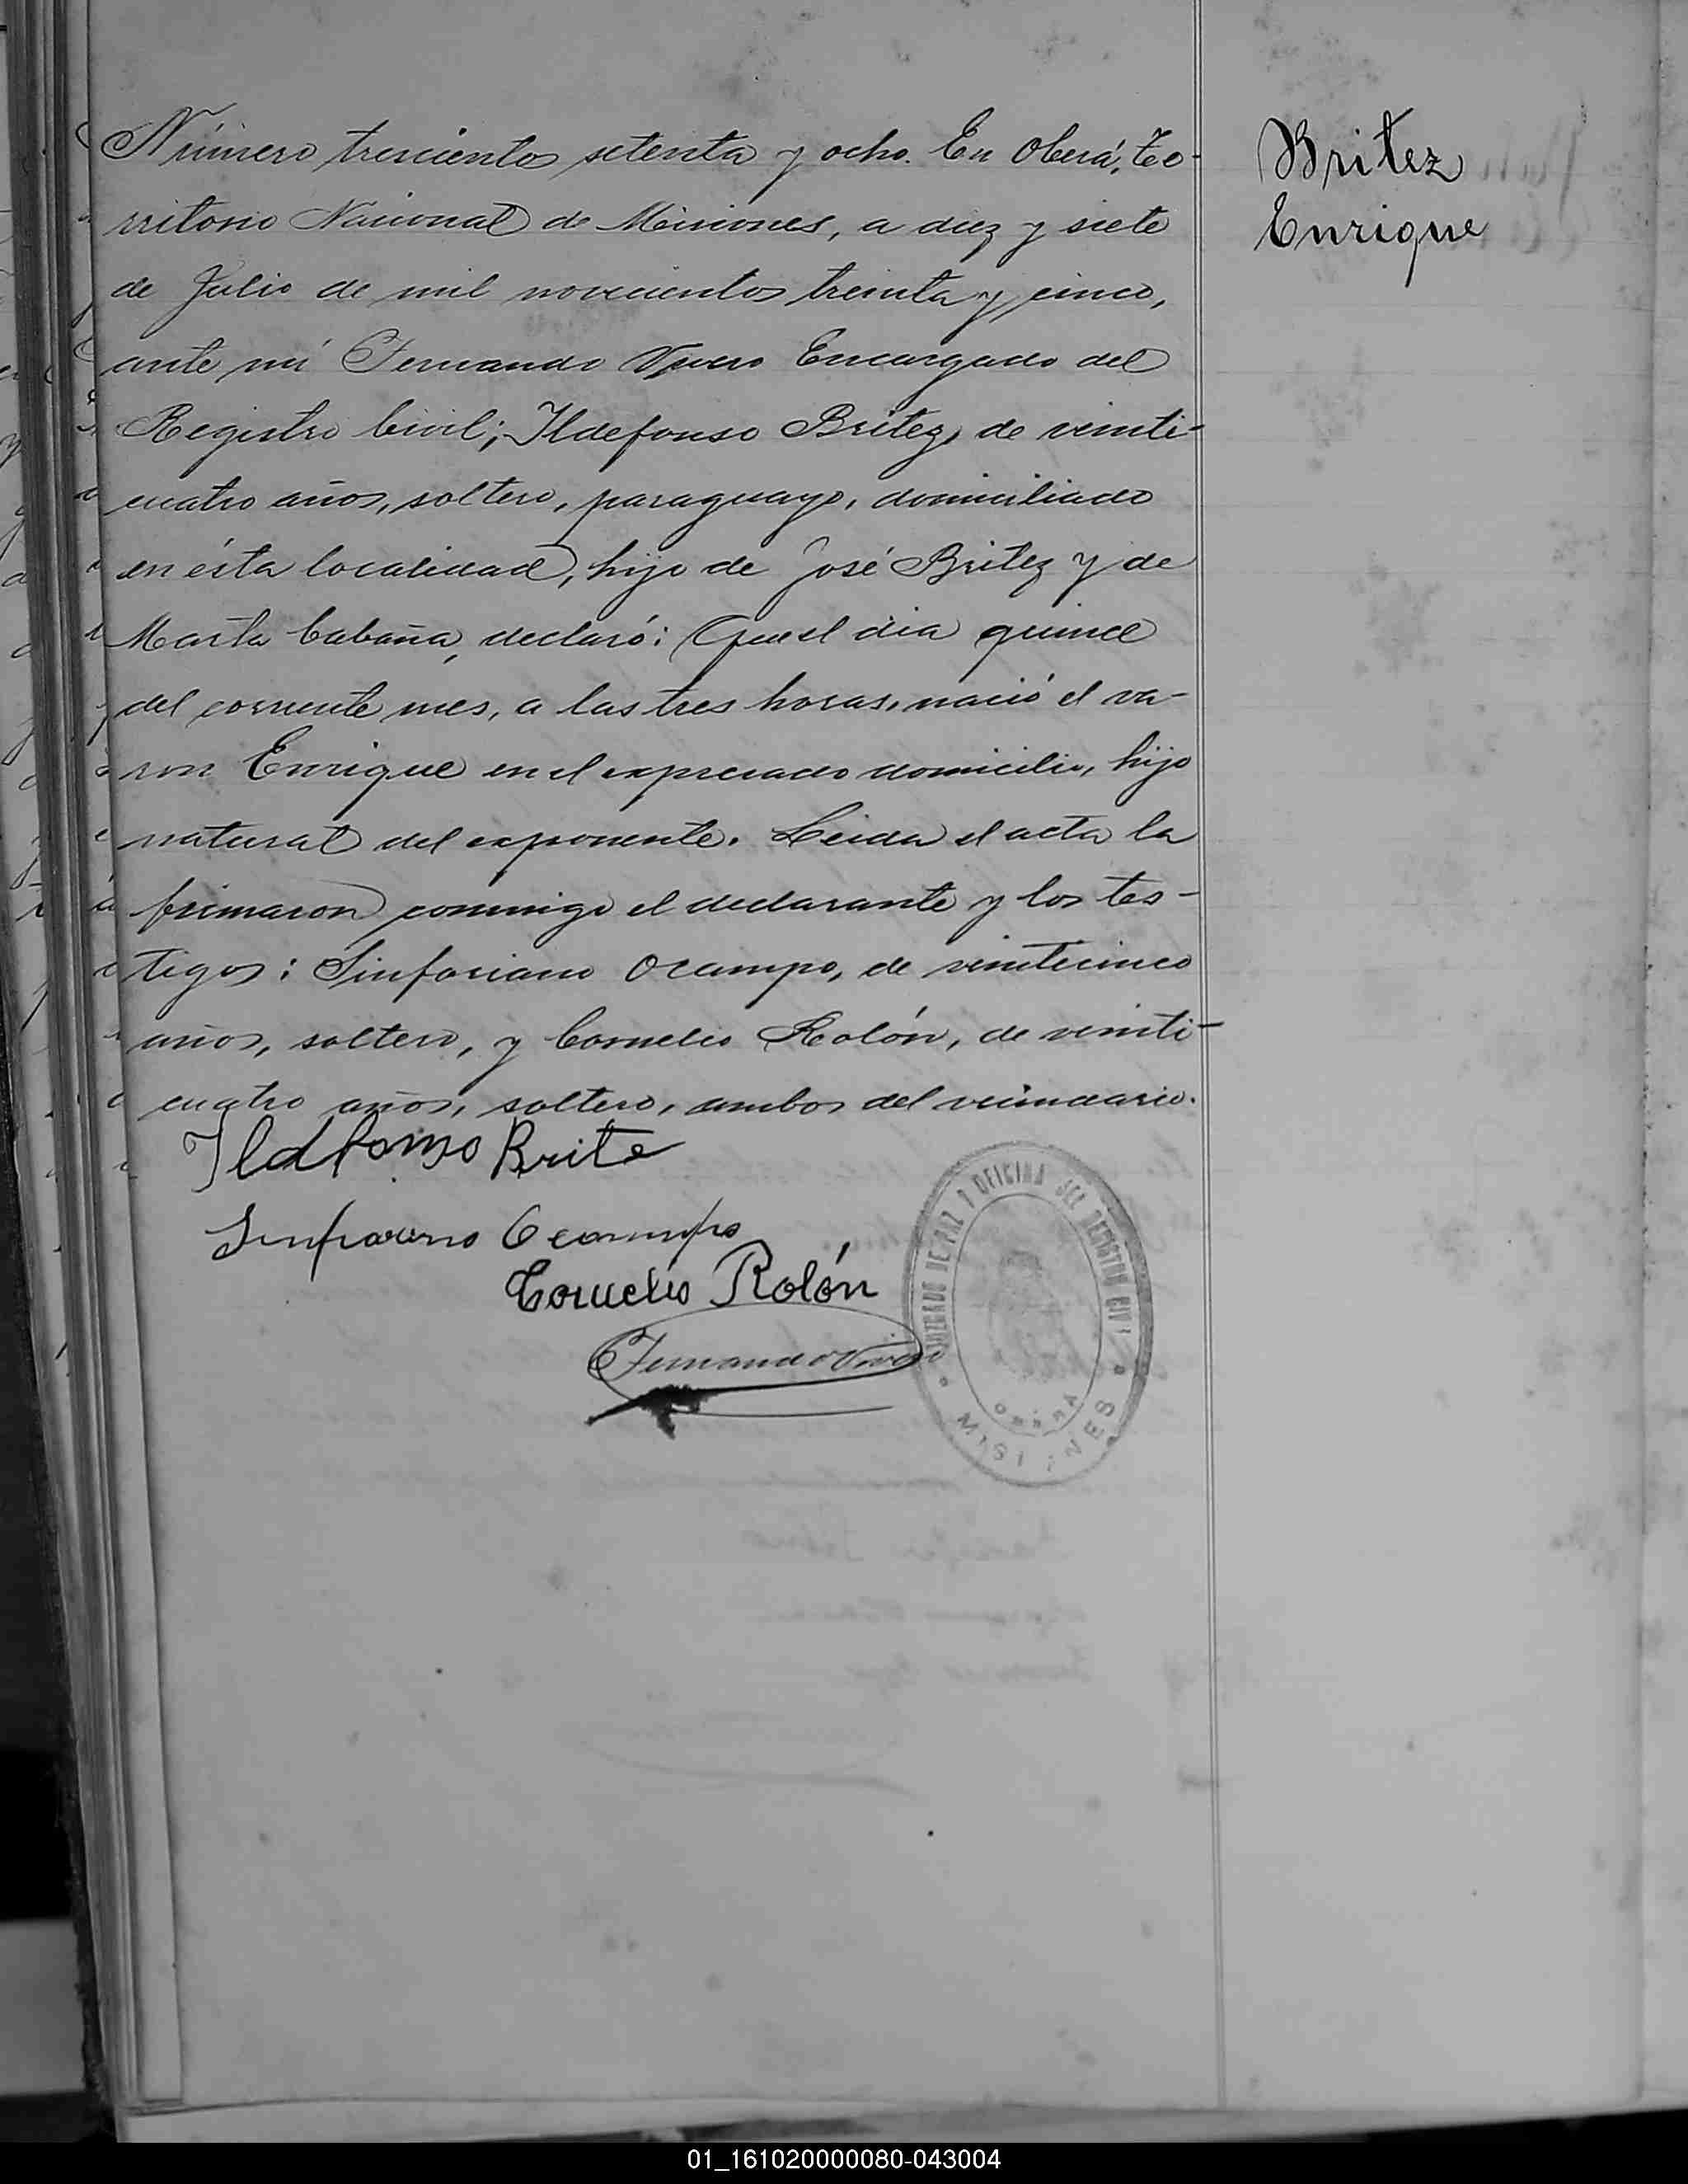 Número trescientos setenta y ocho. En Oberá, Te-
rritorio Nacional de Misiones, a diez y siete
de Julio de mil novecientos treinta y cinco,
ante mí Fernando Vivero Encargado del
Registro Civil; Ildefonso Britez, de veinti-
cuatro años, soltero, paraguayo, domiciliado
en ésta localidad, hijo de José Britez y de
Marta Cabaña, declaró: Que el día quince
del corriente mes, a las tres horas, nació el va-
ron Enrique en el expresado domicilio, hijo
natural del exponente. Leida el acta la
firmaron conmigo el declarante y los tes-
tigos: Sinforiano Ocampo, de veinticinco
años, soltero, y Cornelio Rolón, de veinti-
cuatro años, soltero, ambos del vecindario.
Ildfonso Brite
Ocampo
Cornelio Rolón
Fernando Vivero
JUZGADO DE PAZ Y OFICINA DEL REGISTRO CIVIL
OBERÁ
MISIONES
Britez
Enrique
01_161020000080-043004